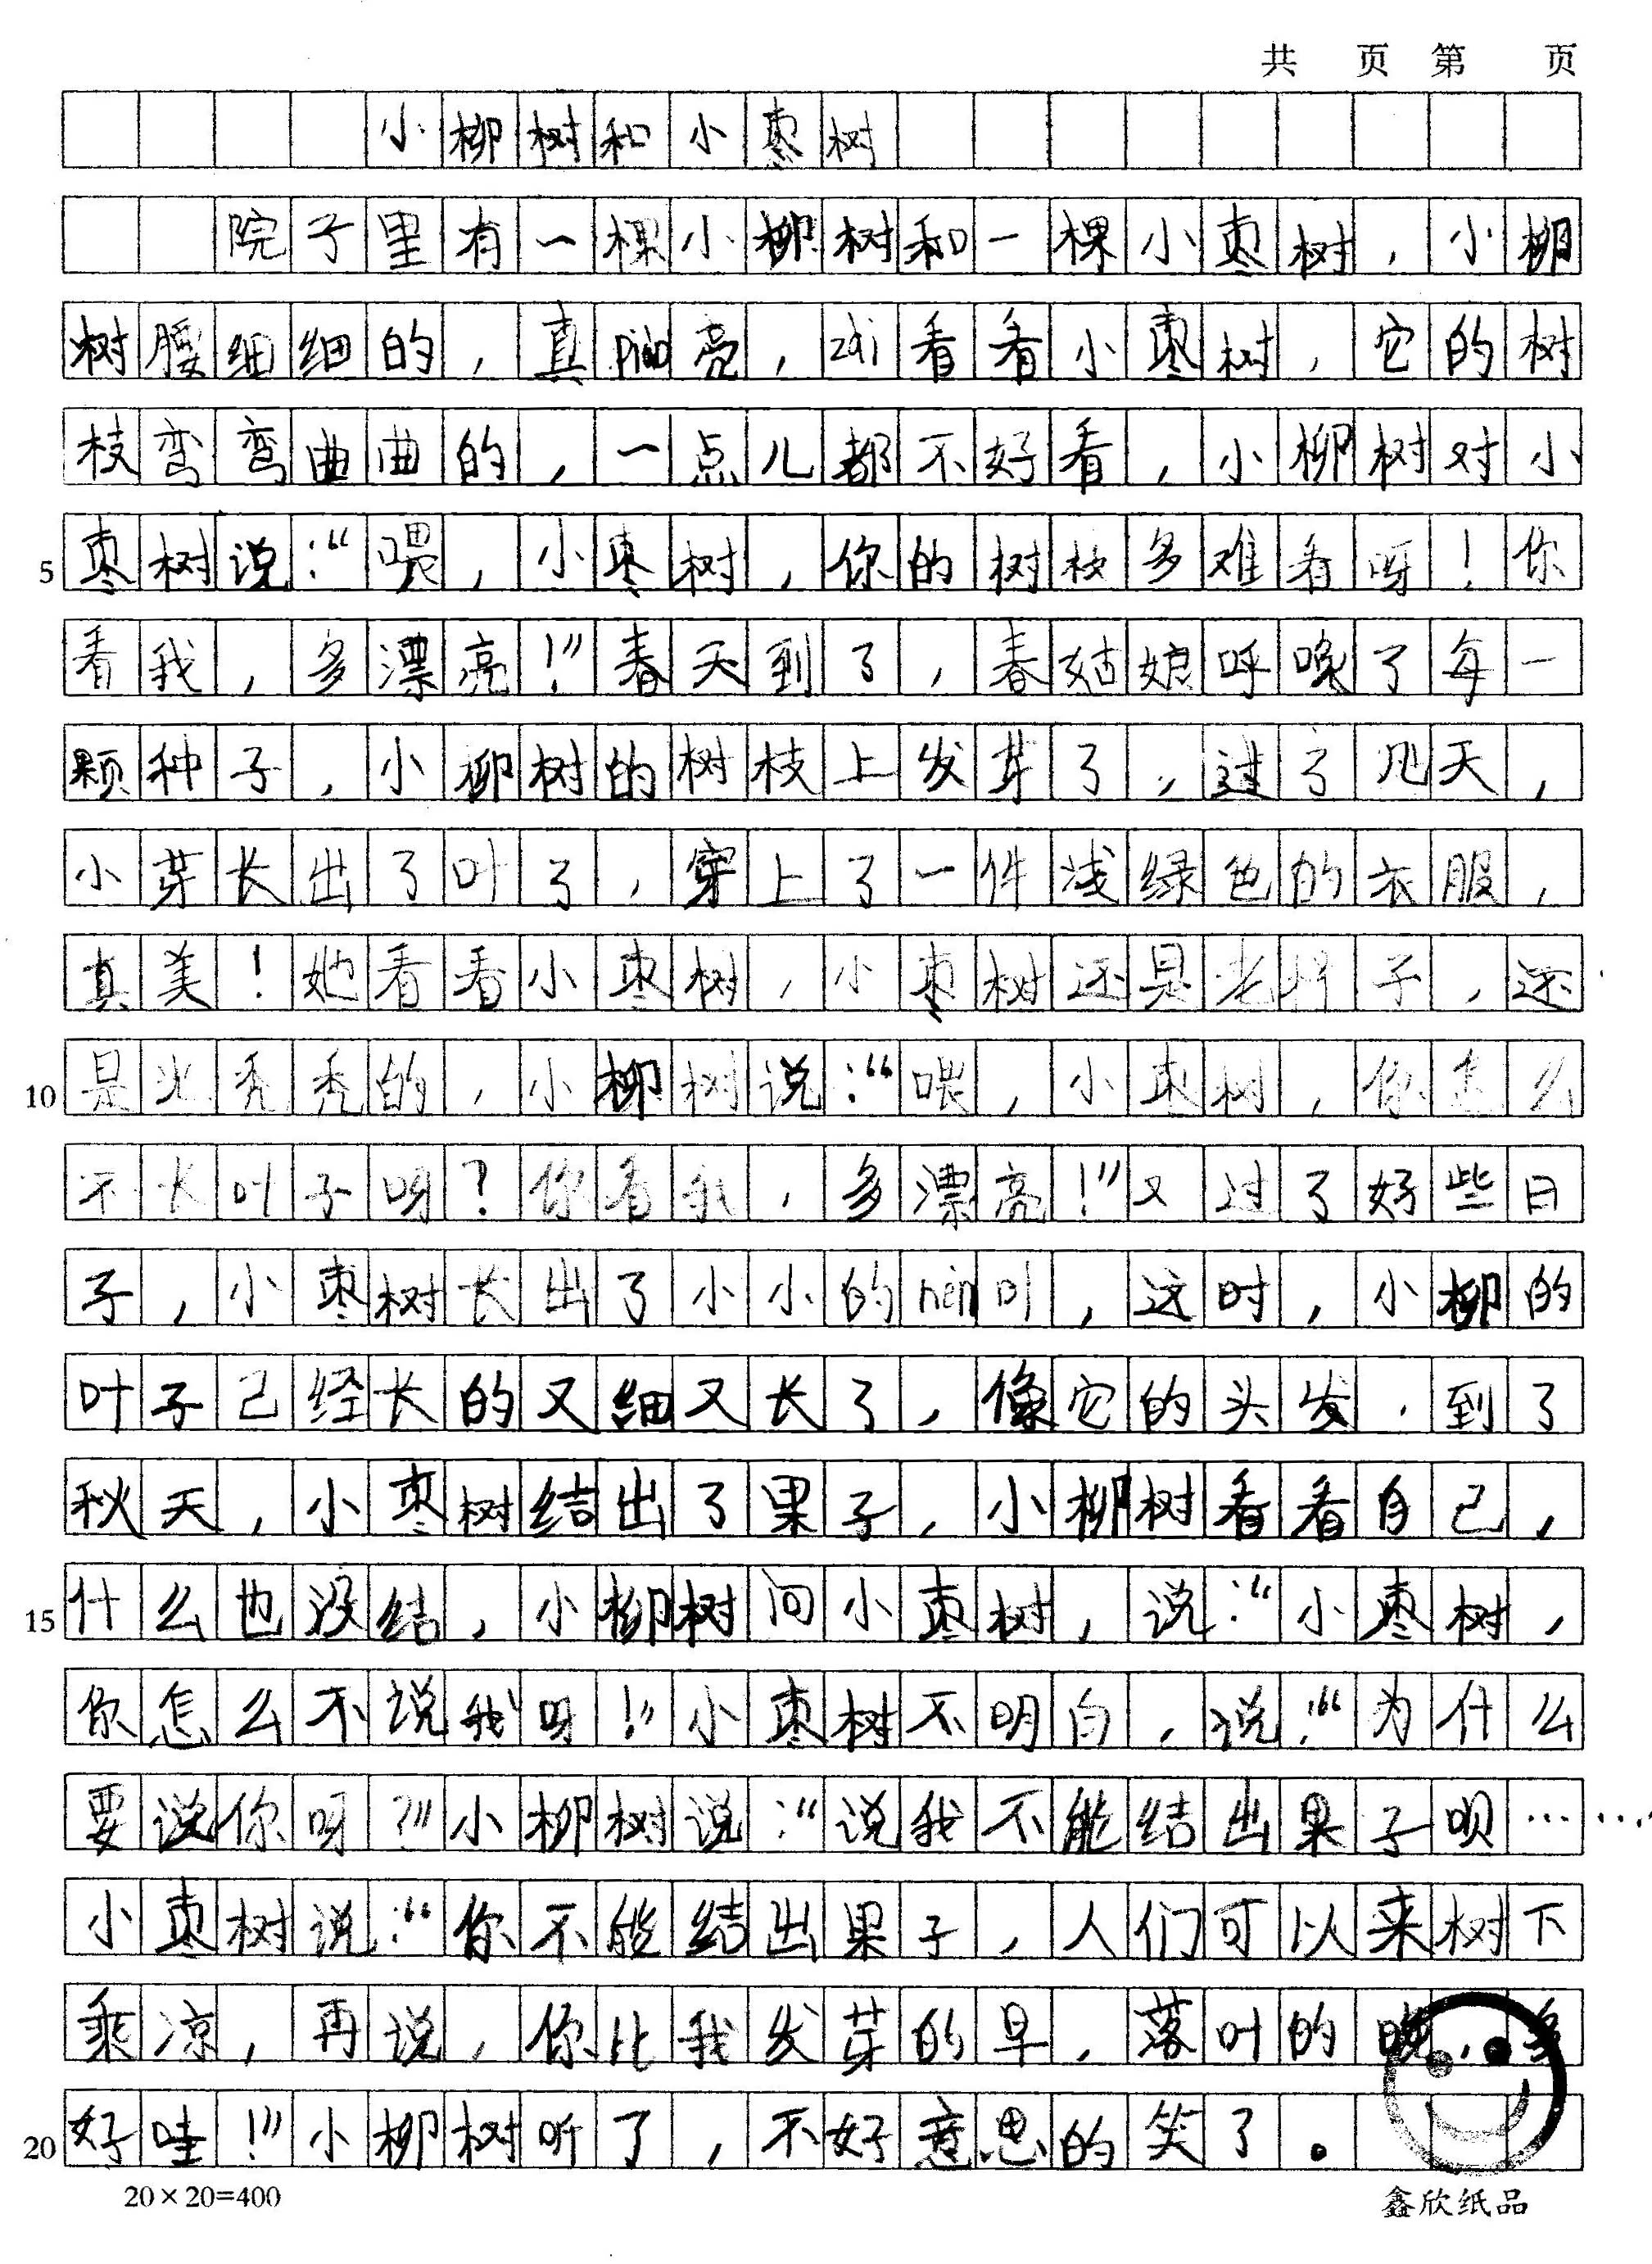 共 页 第 页
小柳树和小枣树
院子里有一棵小柳树和一棵小枣树，小柳
树腰细细的，真piào亮，zài看看小枣树，它的树
枝弯弯曲曲的，一点儿都不好看，小柳树对小
5 枣树说：“喂，小枣树，你的树枝多难看呀！你
看我，多漂亮！”春天到了，春姑娘呼唤了每一
颗种子，小柳树的树枝上发芽了，过了几天，
小芽长出了叶了，穿上了一件浅绿色的衣服，
真美！她看看小枣树，小枣树还是老样子，还
10 是光秃秃的，小柳树说：“喂，小枣树，你怎么
不长叶子呀？你看我，多漂亮！”又过了好些日
子，小枣树长出了小小的nèn叶，这时，小柳的
叶子已经长的又细又长了，像它的头发，到了
秋天，小枣树结出了果子，小柳树看看自己，
15 什么也没结，小柳树问小枣树，说：“小枣树，
你怎么不说我呀！”小枣树不明白，说：“为什么
要说你呀？”小柳树说：“说我不能结出果子呗……
小枣树说：“你不能结出果子，人们可以来树下
乘凉，再说，你比我发芽的早，落叶的晚，多
20 好哇！”小柳树听了，不好意思的笑了。
20×20=400 鑫欣纸品